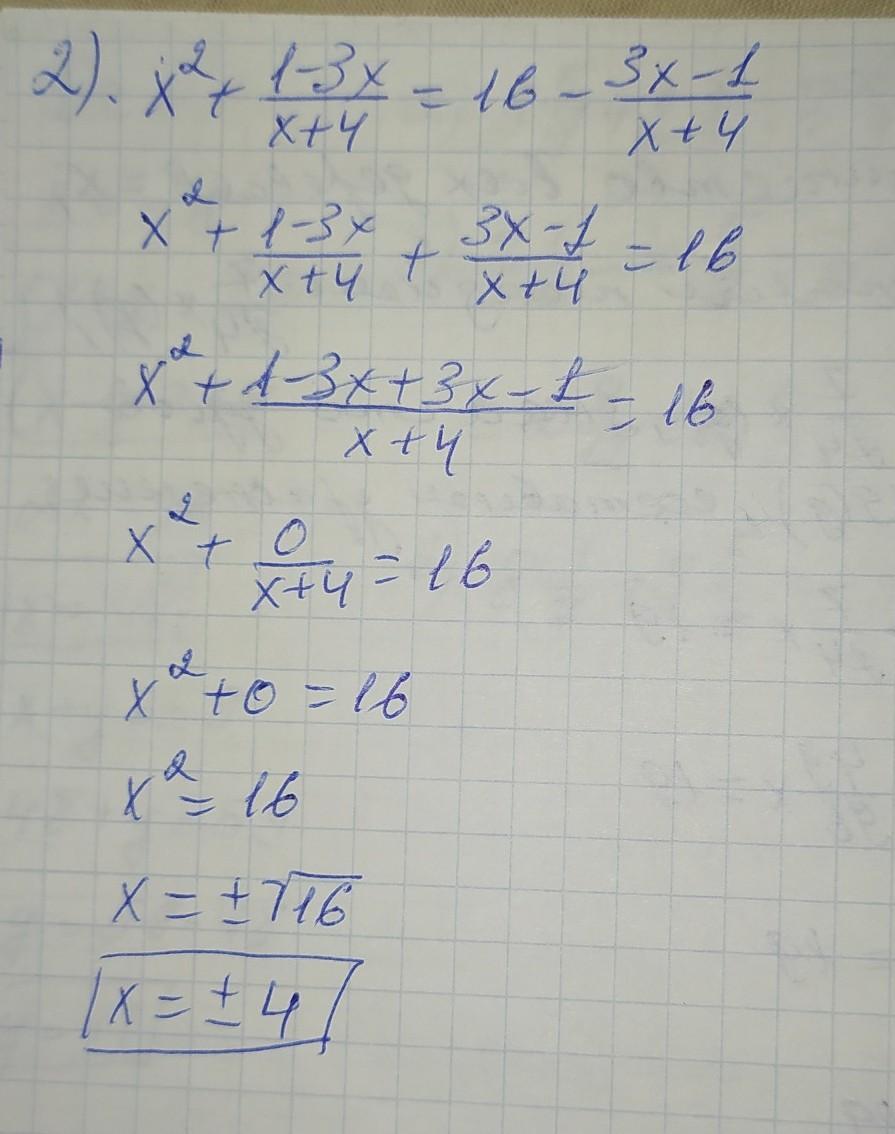 2). x² + (1-3x)/(x+4) = 16 - (3x-1)/(x+4)
x² + (1-3x)/(x+4) + (3x-1)/(x+4) = 16
x² + (1-3x+3x-1)/(x+4) = 16
x² + 0/(x+4) = 16
x² + 0 = 16
x² = 16
x = ±√16
x = ±4